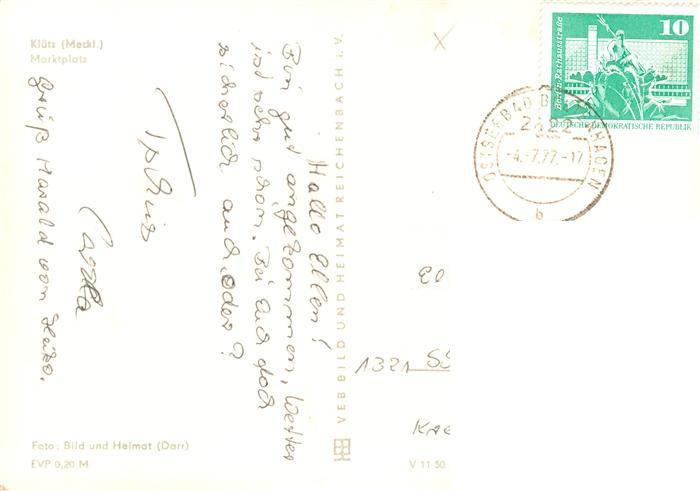 Klütz (Meckl.)
Marktplatz
Hallo Ellen!
Bin gut angekommen, Wetter
ist sehr schön. Bei Euch doch
sicherlich auch, oder?
Tschüs
Gruß Harald von Heiko.
Foto: Bild und Heimat (Darr)
EVP 0,20 M
VEB BILD UND HEIMAT REICHENBACH i. V.
V 11 50
X
10
Berlin-Rathausstraße
DEUTSCHE DEMOKRATISCHE REPUBLIK
OSTSEEBAD HAGEN
-4.-7.77.-17
b
El
1321